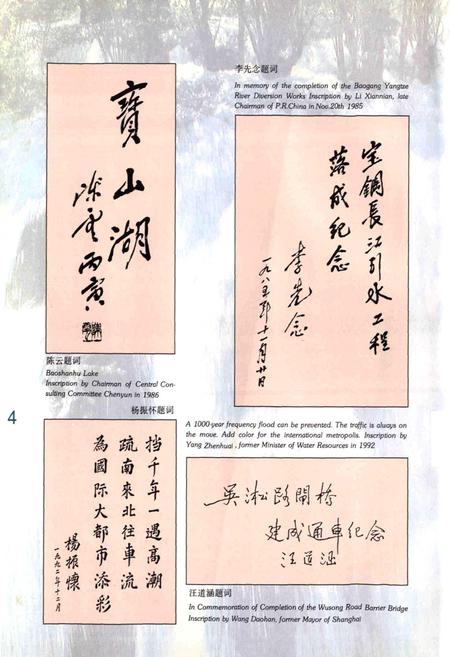 李先念题词
In memory of the completion of the Baogang Yangtze
River Diversion Works Inscription by Li Xiannian, late
Chairman of P.R.China in Noo.20th 1985
寶山湖
陈雲丙寅
宝钢長江引水工程
落成纪念
李先念
一九八五年十一月廿日
陈云题词
Baoshanhu Lake
Inscription by Chairman of Central Con-
sulting Committee Chenyun in 1986
4
杨振怀题词
A 1000-year frequency flood can be presented. The traffic is always on
the move. Add color for the international metropolis. Inscription by
Yang Zhenhuai , former Minister of Water Resources in 1992
挡千年一遇高潮
疏南來北往車流
為國际大都市添彩
楊振懷
一九九二年十二月
吴淞路閘橋
建成通車纪念
汪道涵
汪道涵题词
In Commemoration of Completion of the Wusong Road Barrier Bridge
Inscription by Wang Daohan, former Mayor of Shanghai